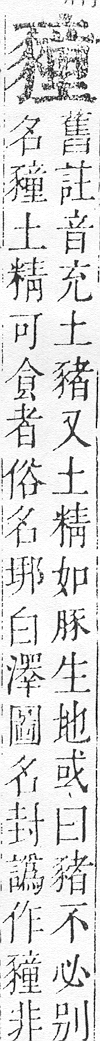 豶
舊註音充土豬又土精如豚生地或曰豬不必別
名豶土精可食者俗名琊白澤圖名封譌作豶非